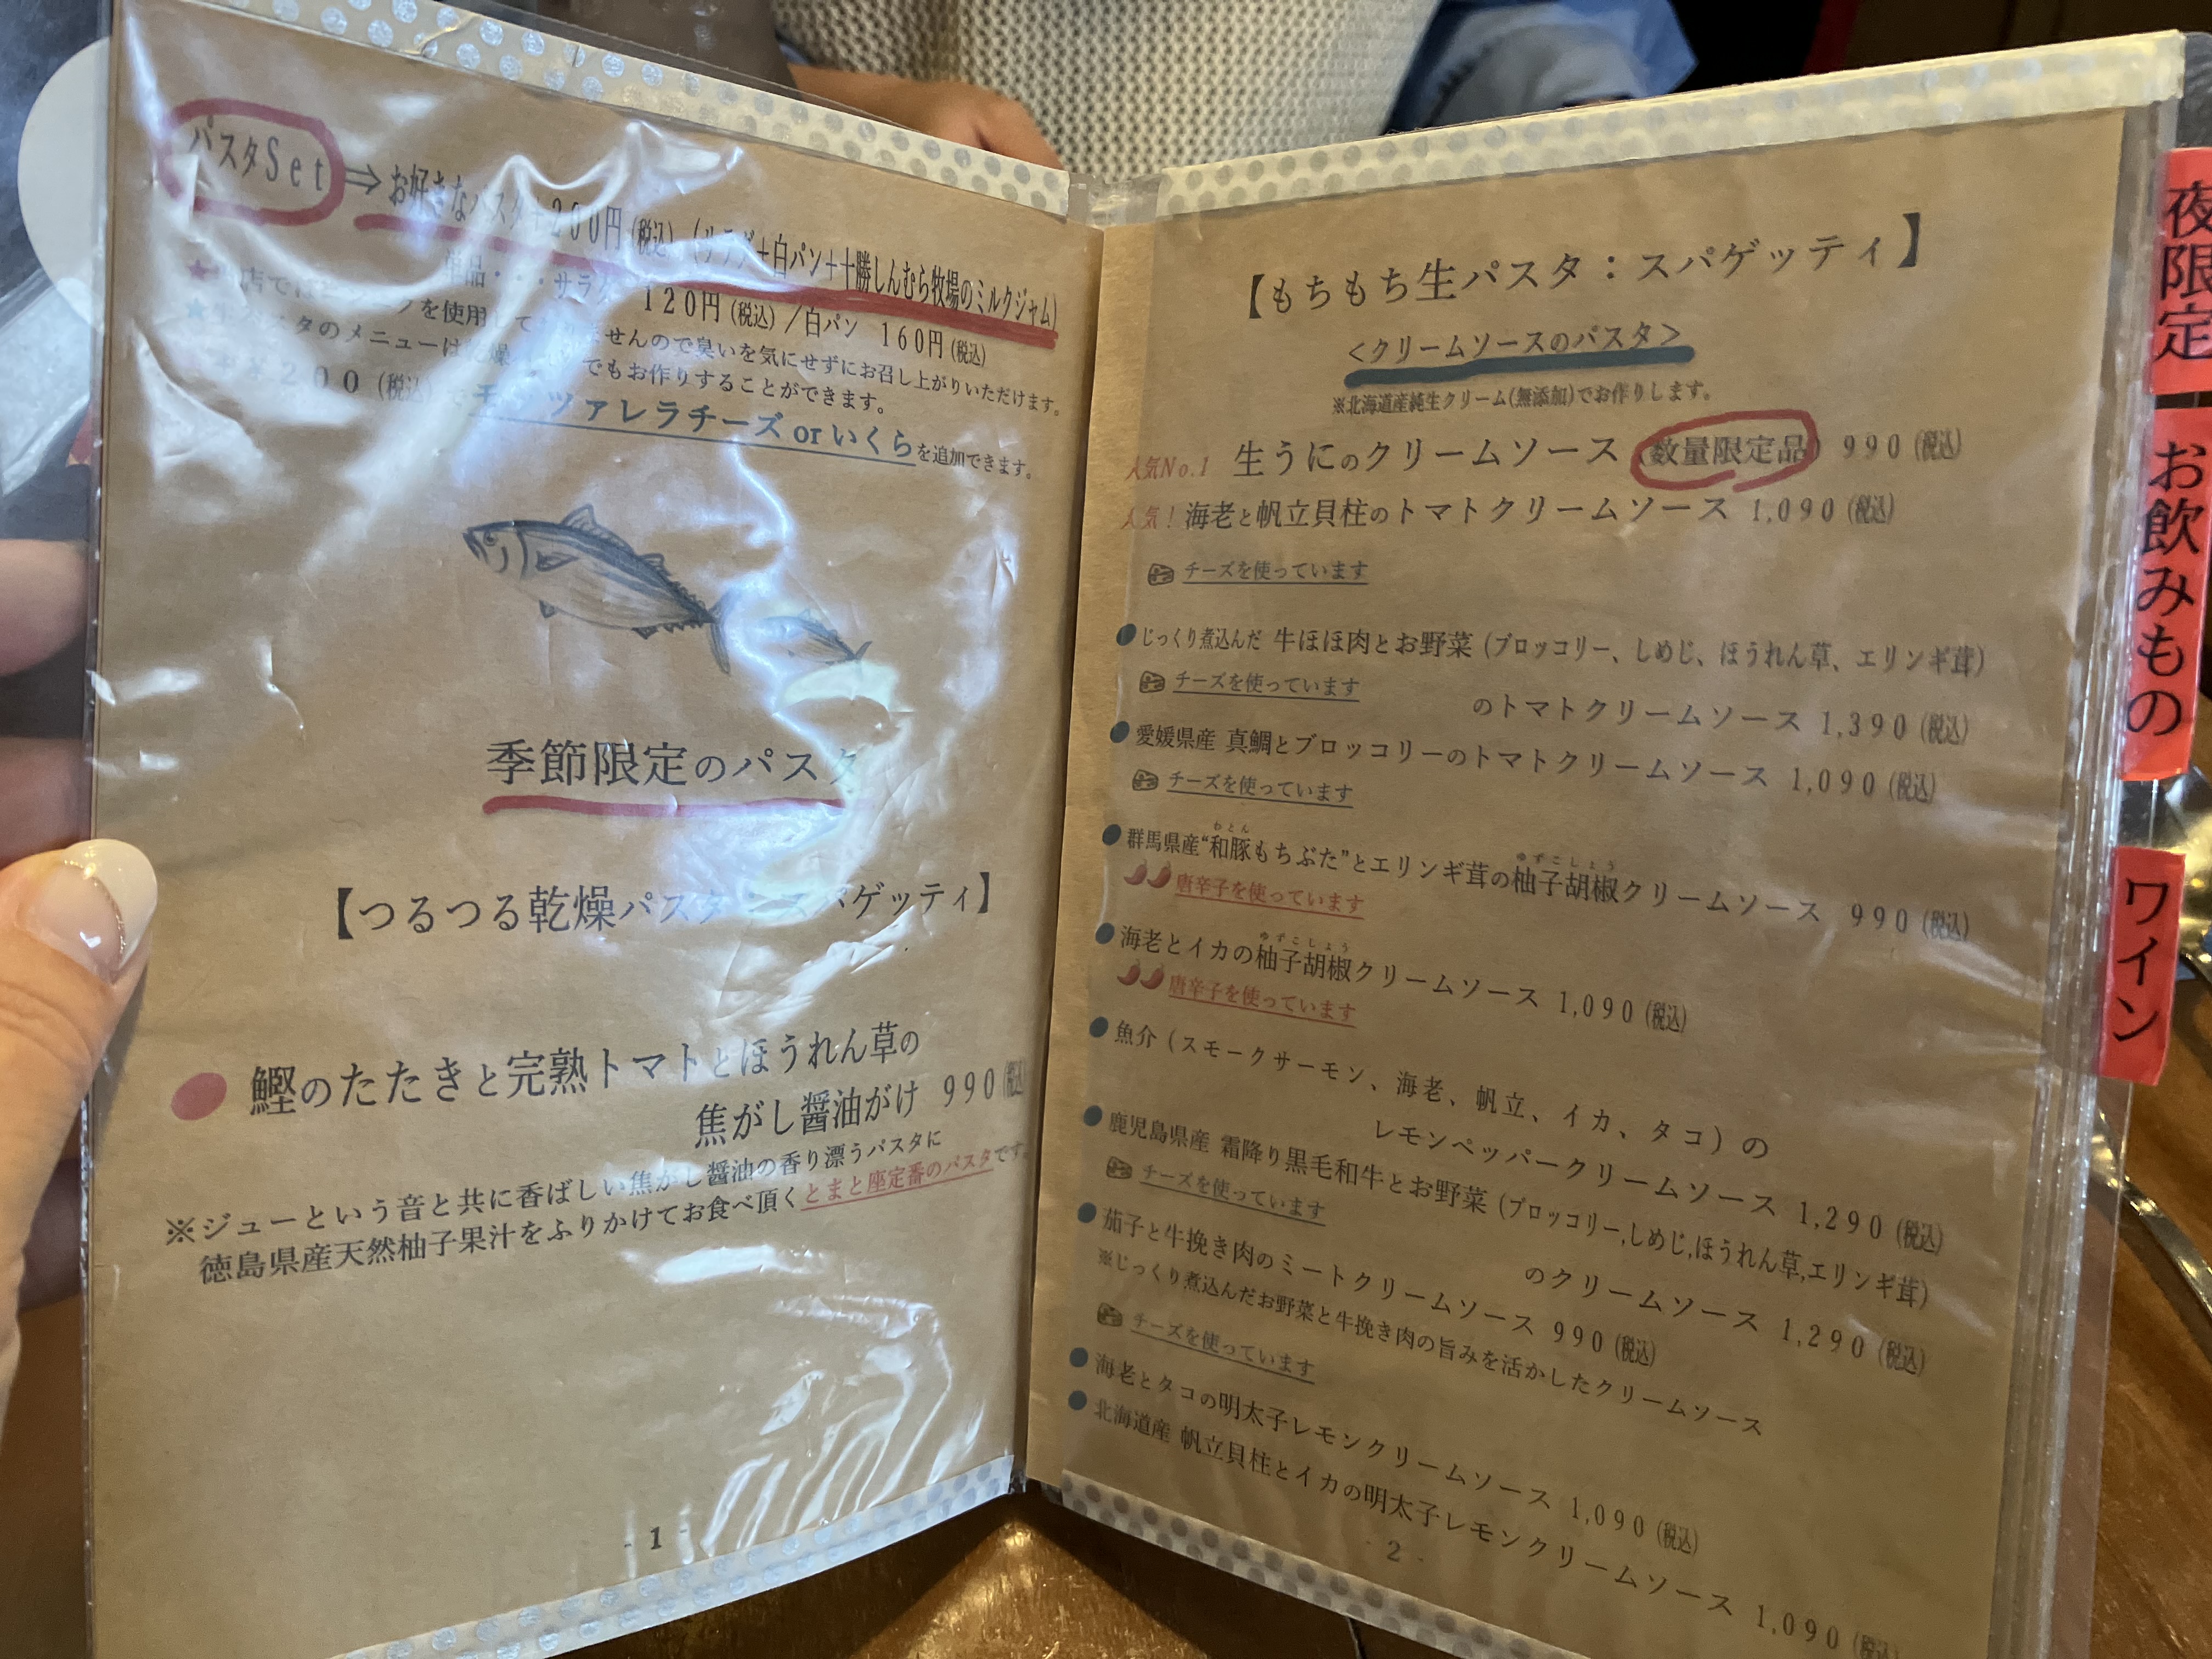 パスタSet⇒お好きなパスタ+200円(税込)(サラダ+白パン+十勝しんむら牧場のミルクジャム)
単品・・・サラダ 120円(税込)/白パン 160円(税込)
を使用して ませんので臭いを気にせずにお召し上がりいただけます。
パスタのメニューは でもお作りすることができます。
200(税込)で モッツァレラチーズ or いくらを追加できます。
季節限定のパスタ
【つるつる乾燥パスタ:スパゲッティ】
●鰹のたたきと完熟トマトとほうれん草の
焦がし醤油がけ 990(税込)
※ジューという音と共に香ばしい焦がし醤油の香り漂うパスタに
徳島県産天然柚子果汁をふりかけてお食べ頂くとまと座定番のパスタです。
- 1 -
【もちもち生パスタ:スパゲッティ】
<クリームソースのパスタ>
※北海道産純生クリーム(無添加)でお作りします。
人気No.1 生うにのクリームソース(数量限定品) 990(税込)
人気!海老と帆立貝柱のトマトクリームソース 1,090(税込)
チーズを使っています
●じっくり煮込んだ 牛ほほ肉とお野菜(ブロッコリー、しめじ、ほうれん草、エリンギ茸)
のトマトクリームソース 1,390(税込)
チーズを使っています
●愛媛県産 真鯛とブロッコリーのトマトクリームソース 1,090(税込)
チーズを使っています
わとん ゆずこしょう
●群馬県産“和豚もちぶた”とエリンギ茸の柚子胡椒クリームソース 990(税込)
唐辛子を使っています
ゆずこしょう
●海老とイカの柚子胡椒クリームソース 1,090(税込)
唐辛子を使っています
●魚介(スモークサーモン、海老、帆立、イカ、タコ)の
レモンペッパークリームソース 1,290(税込)
●鹿児島県産 霜降り黒毛和牛とお野菜(ブロッコリー,しめじ,ほうれん草,エリンギ茸)
のクリームソース 1,290(税込)
チーズを使っています
●茄子と牛挽き肉のミートクリームソース 990(税込)
※じっくり煮込んだお野菜と牛挽き肉の旨みを活かしたクリームソース
チーズを使っています
●海老とタコの明太子レモンクリームソース 1,090(税込)
●北海道産 帆立貝柱とイカの明太子レモンクリームソース 1,090(税込)
- 2 -
夜限定
お飲みもの
ワイン